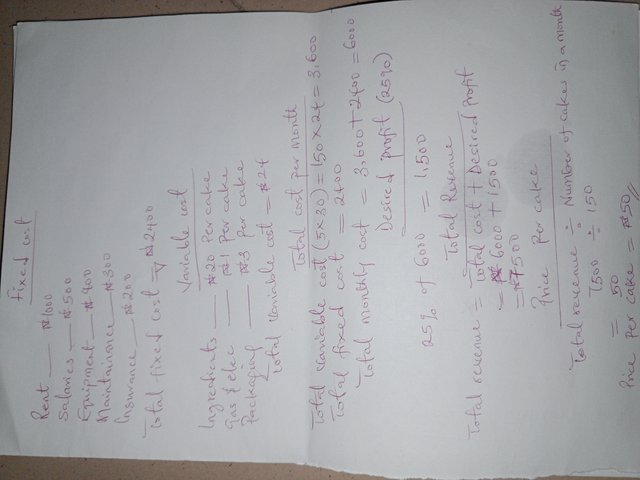 Fixed cost
Rent — ₦1000
Salaries — ₦500
Equipment — ₦400
Maintainance — ₦300
Insurance — ₦200
Total fixed cost = ₦2400
Variable cost
Ingredients — ₦20 Per cake
Gas & elec — ₦1 Per cake
Packaging — ₦3 Per cake
Total variable cost = ₦24
Total cost per month
Total variable cost (5×30) = 150 × 24 = 3,600
Total fixed cost = 2400
Total monthly cost = 3,600 + 2400 = 6000
Desired profit (25%)
25% of 6000 = 1,500
Total Revenue
Total revenue = Total cost + Desired profit
= ₦6000 + 1500
= ₦7500
Price Per cake
Total revenue ÷ Number of cakes in a month
7500 ÷ 150
= 50
Price per cake = ₦50 //